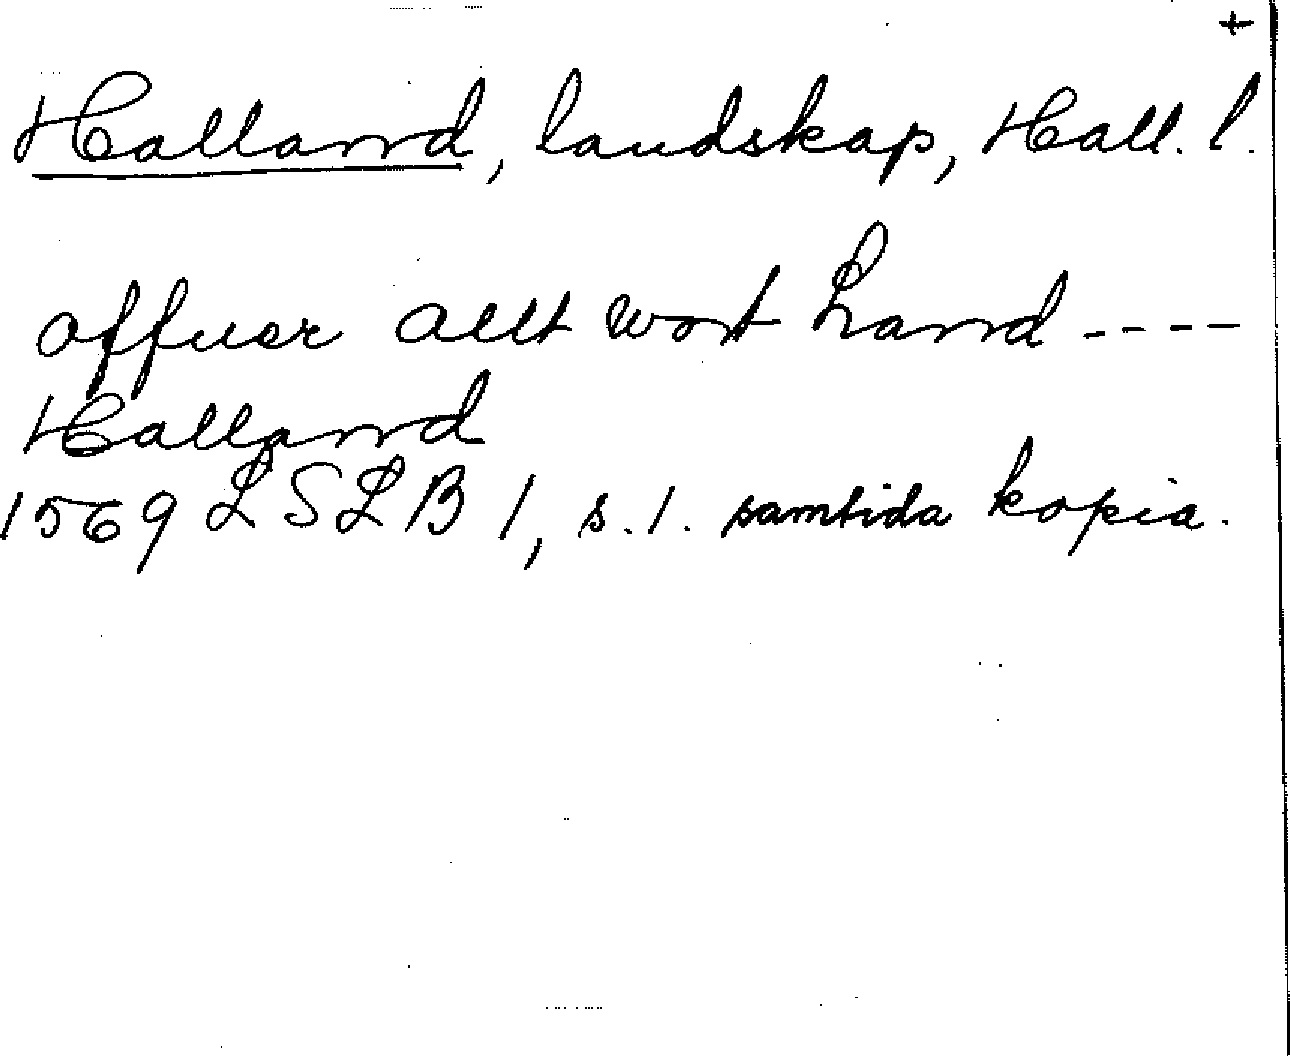 +
Halland, landskap, Hall. l.
offuer allt wort Land ----
Halland
1569 LSLB 1, s. 1. samtida kopia.